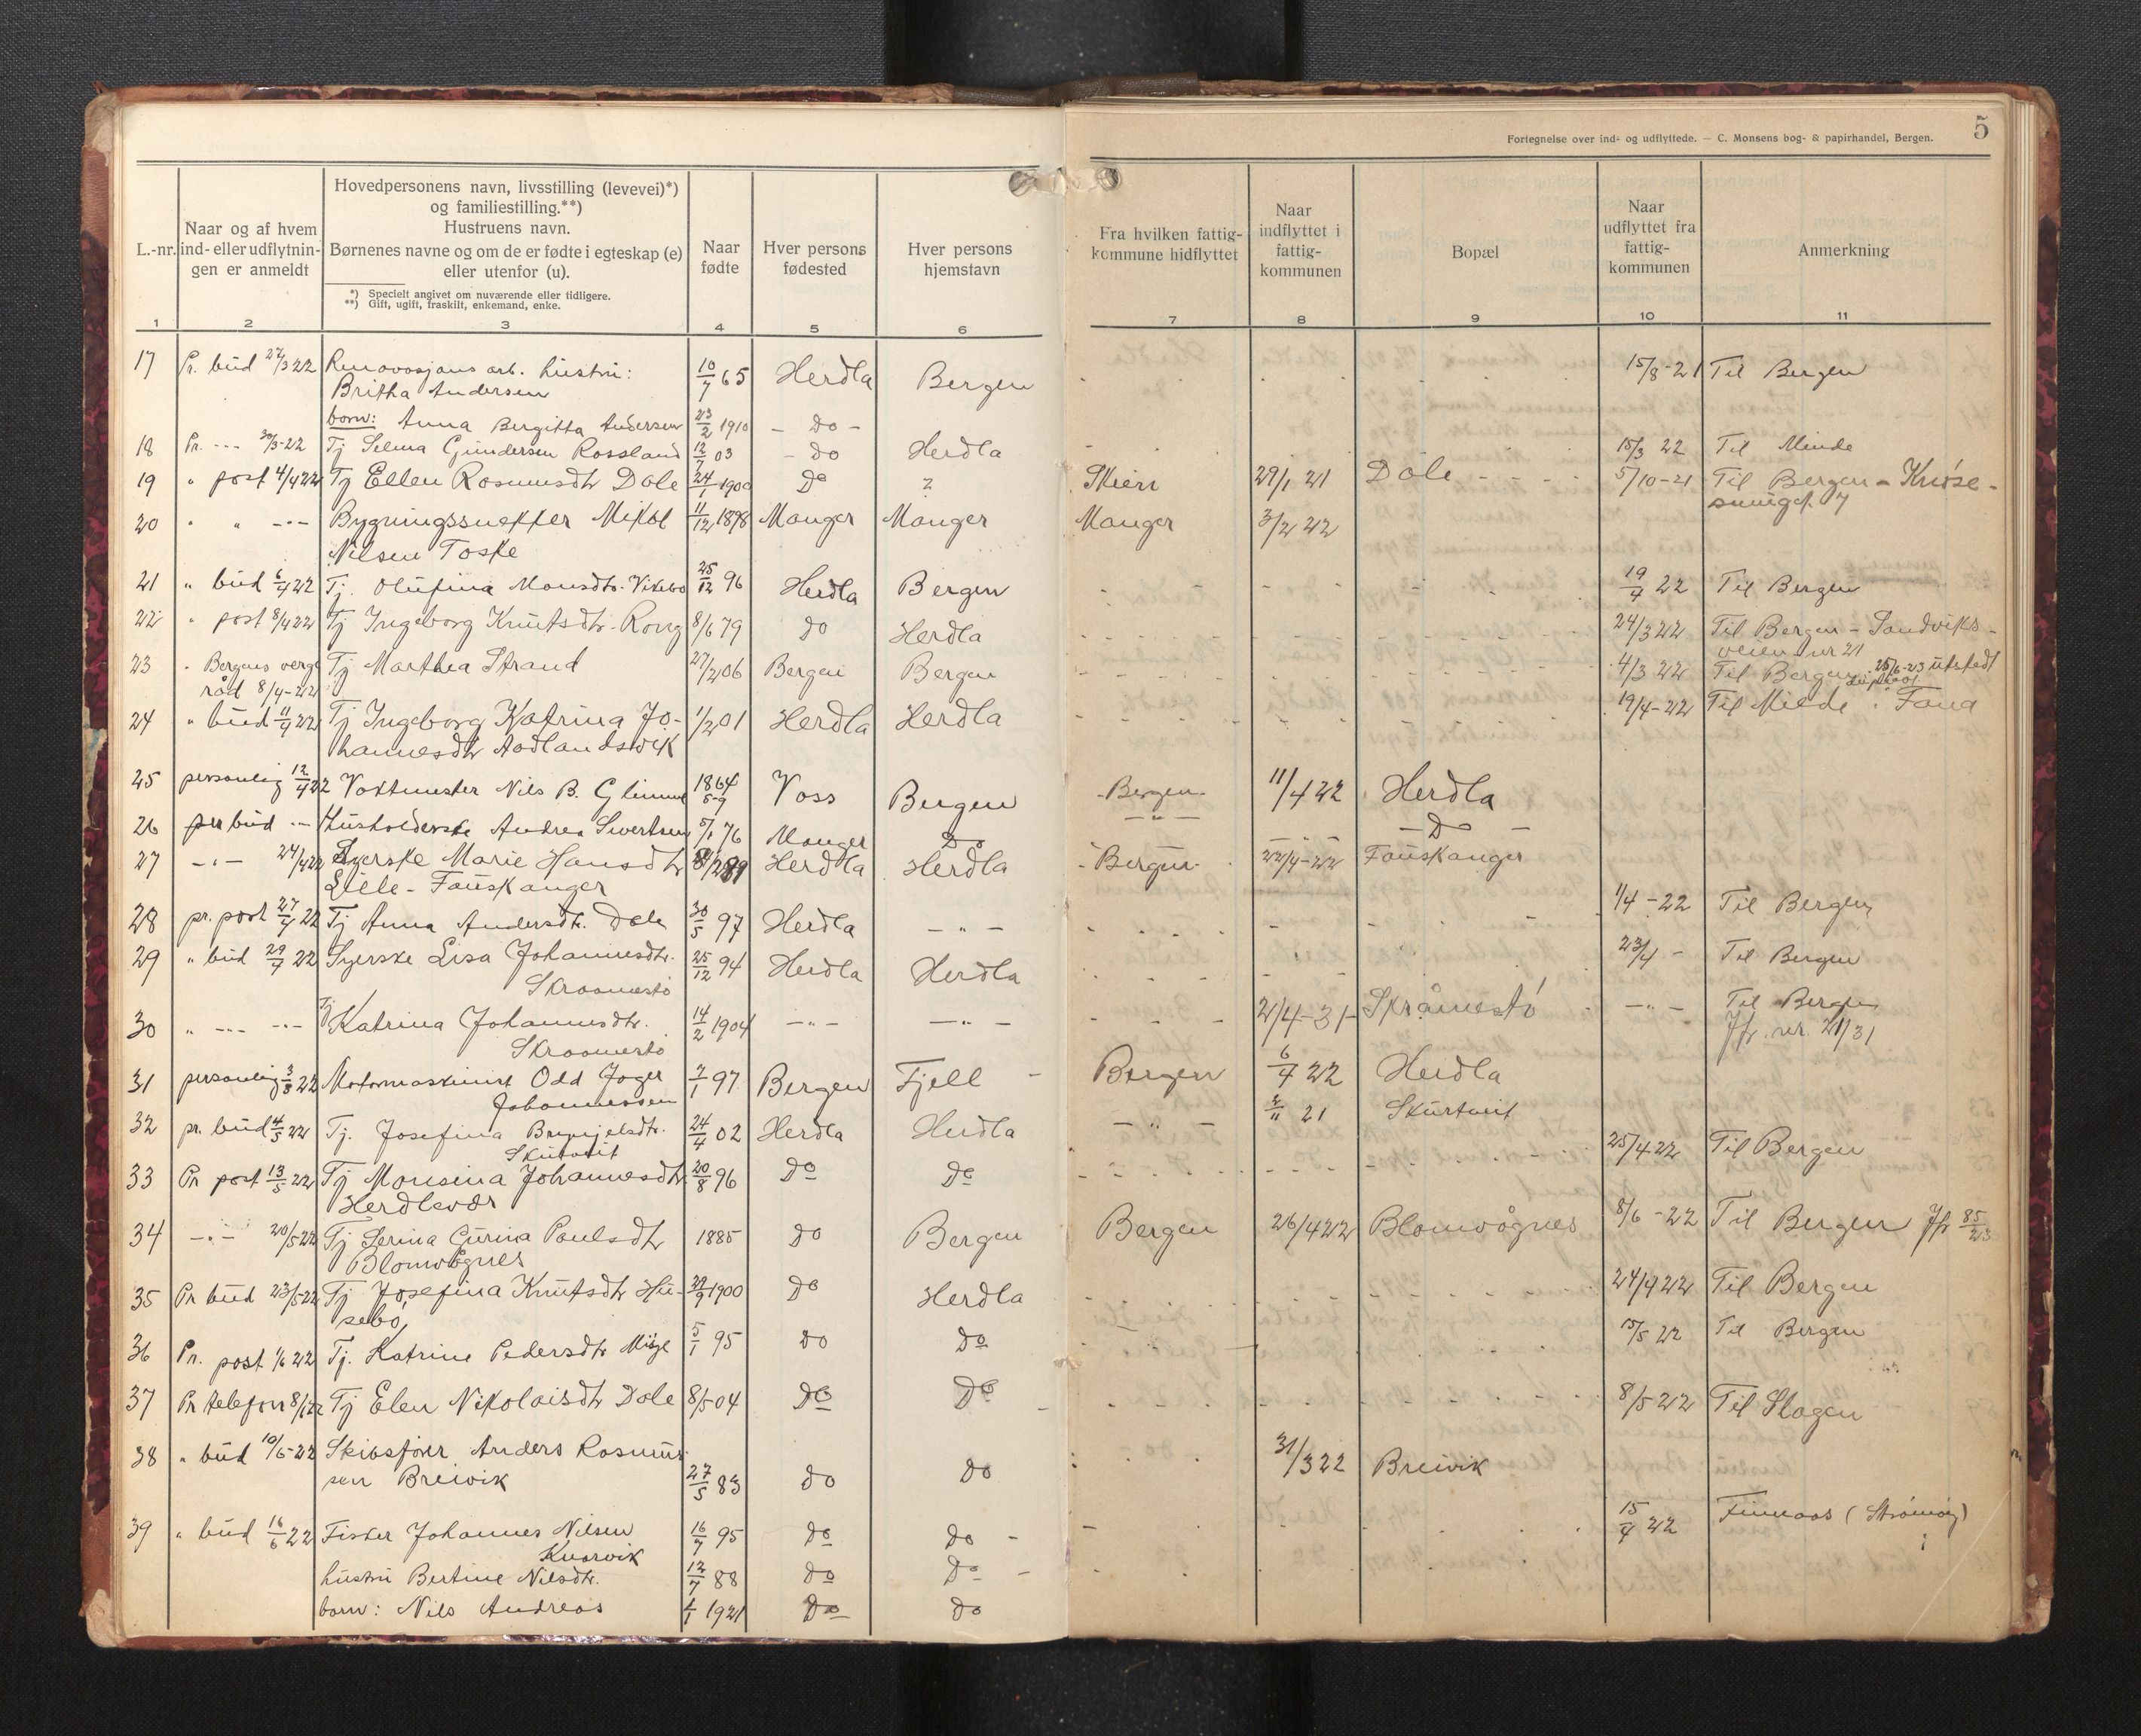 Fortegnelse over ind- og udflyttede. — C. Monsens bog- & papirhandel, Bergen.
5
L.-nr.
Naar og af hvem ind- eller udflytningen er anmeldt
Hovedpersonens navn, livsstilling (levevei)*)
og familiestilling.**)
Hustruens navn.
Børnenes navne og om de er fødte i egteskap (e)
eller utenfor (u).
*) Specielt angivet om nuværende eller tidligere.
**) Gift, ugift, fraskilt, enkemand, enke.
Naar fødte
Hver persons fødested
Hver persons hjemstavn
Fra hvilken fattigkommune hidflyttet
Naar indflyttet i fattigkommunen
Bopæl
Naar udflyttet fra fattigkommunen
Anmerkning
1 2 3 4 5 6 7 8 9 10 11
17 Pr. bud 27/3 22 Renovasjons arb. hustru: 10/7 65 Herdla Bergen 15/8-21 Til Bergen
Britha Andersen
born: Anna Bergitta Andersen 23/2 1910 - Do -
18 Pr. -"- 30/3-22 Tj Selma Gundersen Rossland 12/7 03 - Do Herdla 15/3 22 Til Minde
19 " post 4/4 22 Tj Ellen Rasmusdtr Dale 24/1 1900 Do ? Skien 29/1 21 Dale 5/10-21 Til Bergen - Knøse-
smuget 7
20 " " -"- Bygningssnekker Mikal 11/12 1898 Manger Manger Manger 3/2 22
Nilsen Toske
21 " bud 6/4 22 Tj. Olufina Monsdtr. Vikebø 25/12 96 Herdla Bergen 19/4 22 Til Bergen
22 " post 8/4 22 Tj Ingeborg Knutsdtr. Rong 8/6 79 Do Herdla 24/3 22 Til Bergen - Sandviks-
veien nr 21
23 " Bergens verge Tj Marthea Strand 27/2 06 Bergen Bergen 4/3 22 Til Bergen 25/6-23 utstedt
råd 8/4-22
24 " bud 11/4 22 Tj Ingeborg Katrina Jo- 1/2 01 Herdla Herdla 19/4-22 Til Milde i Fana
hannesdtr Aadlandsvik
25 personlig 12/4 22 Vaktmester Nils B. Glimme 1864 5-9 Voss Bergen Bergen 11/4 22 Herdla
26 per bud -"- Husholderske Andrea Sivertsen 5/1 76 Manger Do -"- -"- - Do -
27 -"- 24/4 22 Syerske Marie Hansdtr 8/2 89 Herdla Herdla Bergen 22/4-22 Fauskanger
Lille - Fauskanger
28 pr. post 27/4 22 Tj Anna Andersdtr. Dale 30/5 97 Herdla -"- 1/4-22 Til Bergen
29 " bud 29/4 22 Syerske Lisa Johannesdtr. 25/12 94 Herdla Herdla 23/4 - Til Bergen
Skraamestø
30 " -"- -"- Tj Katrina Johannesdtr. 14/2 1904 -"- -"- 21/4-31 Skråmestø -"- Til Bergen
Skraamestø Jfr. nr. 21/31
31 personlig 3/5 22 Motormaskinist Odd Jøger 7/1 97 Bergen Fjell Bergen 6/4 22 Herdla
Johannessen
32 pr. bud 4/5 22 Tj. Josefina Brynjelsdtr. 24/4 02 Herdla Herdla -"- 21 Skurtveit
33 Pr post 13/5 22 Tj Monsina Johannesdtr 20/8 96 Do Do 25/4 22 Til Bergen
Herdlevær
34 -"- 20/5 22 Tj Serina Gurina Paulsdtr 1885 Do Bergen Bergen 26/4 22 Blomvågnes 8/6-22 Til Bergen Jfr 85/23
Blomvågnes
35 Pr bud 23/5-22 Tj Josefina Knutsdtr Hu- 29/9 1900 Do Herdla 24/4 22 Til Bergen
sebø
36 Pr. post 1/6 22 Tj. Katrine Pedersdtr Misje 5/1 95 Do Do 15/5 22 Til Bergen
37 Pr telefon 8/6 22 Tj Elen Nikolaisdtr Dale 8/5 04 Do Do 8/5 22 Til Skogen
38 " bud 10/6-22 Skibsfører Anders Rasmus-
sen Breivik 27/5 83 Do Do 31/3 22 Breivik
39 " bud 16/6 22 Fisker Johannes Nilsen 16/7 95 Do Do 15/4 22 Finnaas (Strømøy)
Knarvik
hustru Bertine Nilsdtr. 12/7 88 Do Do
barn: Nils Andreas 1/1 1921 Do Do